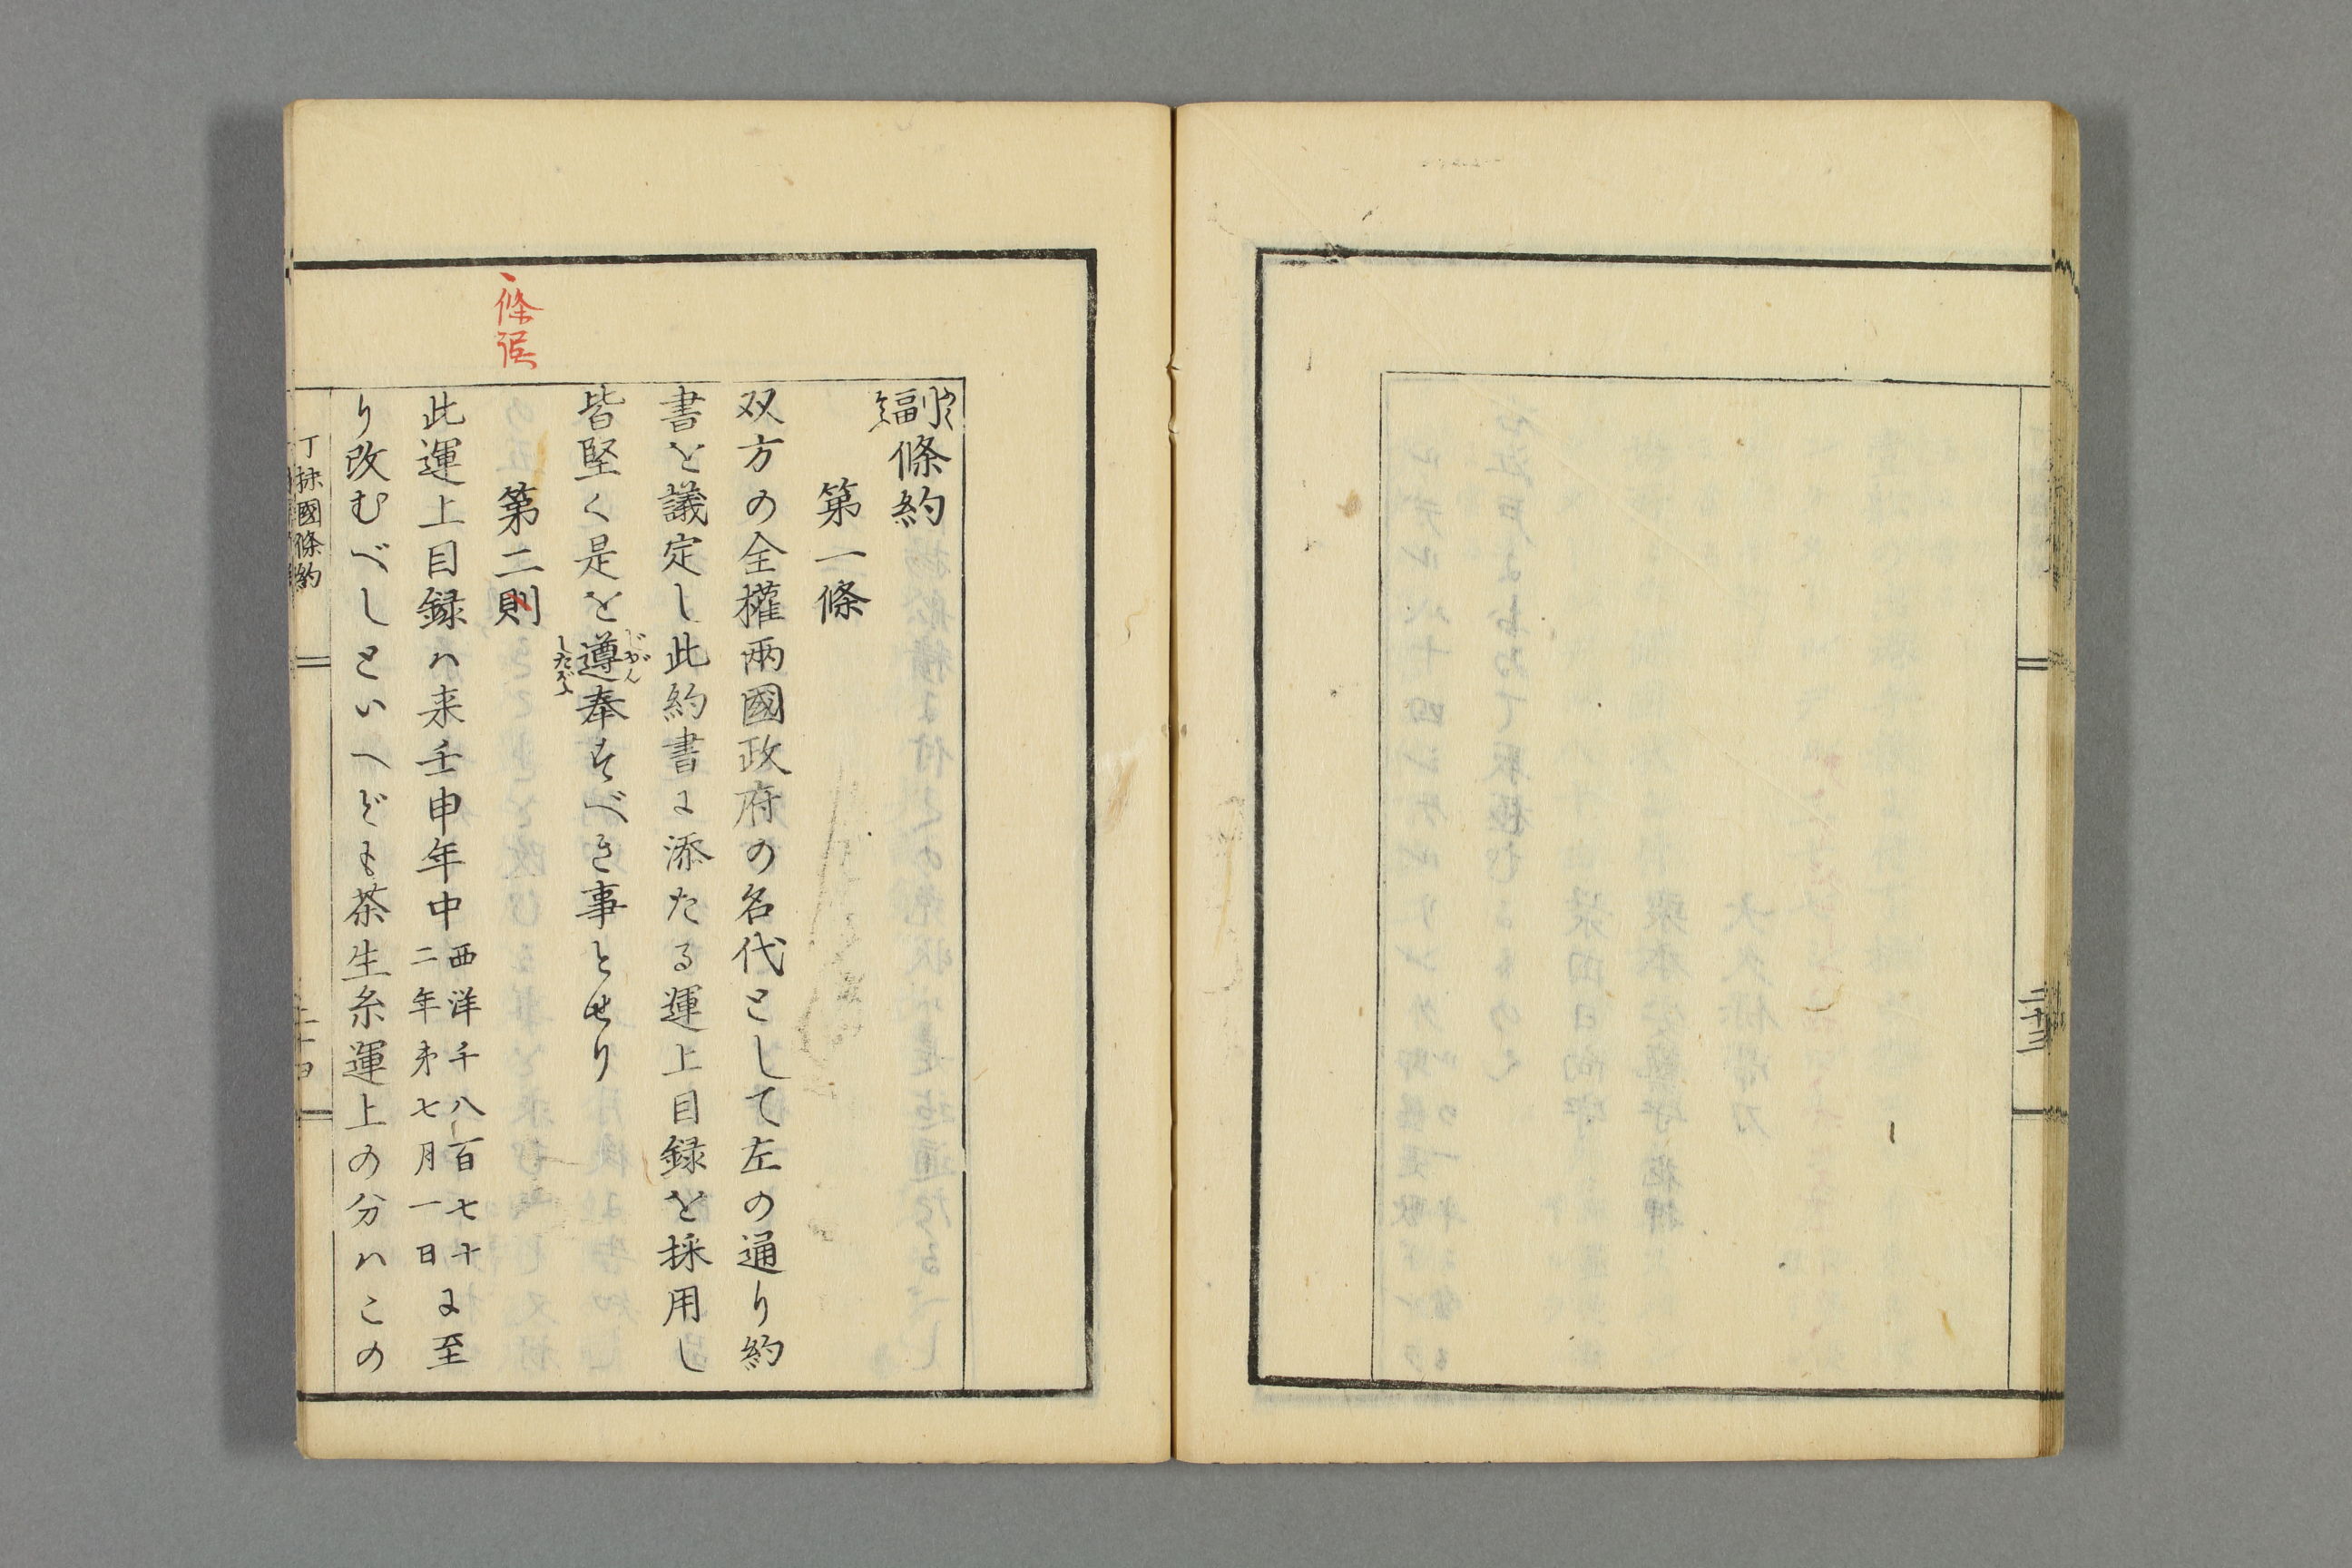 二十三
副條約
第一條
双方の全權兩國政府の名代として左の通り約
書を議定し此約書に添たる運上目録を採用し
皆堅く是を遵奉すべき事とせり
じゆん
したがふ
條
第二則
此運上目録ハ来壬申年中
西洋千八百七十
二年第七月一日
に至
り改むべしといへども茶生糸運上の分ハこの
丁抹國條約